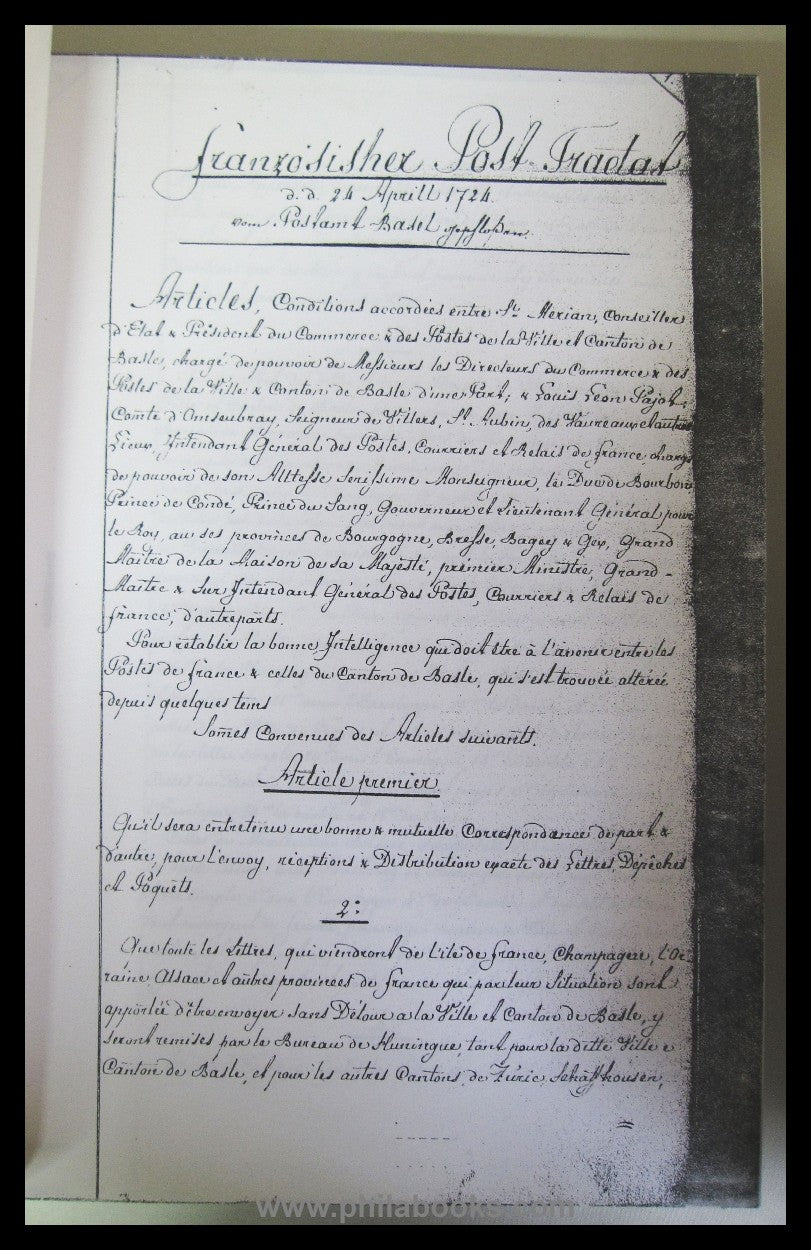 französisher Post Tradat
d. d. 24 Aprill 1724.
vom Postamt Basel geschloßen.
Articles, Conditions accordées entre Sr. Merian, Conseiller
d'Etat & Président du Commerce & des Postes de la Ville et Canton de
Basle, chargé de pouvoir de Messieurs les Directeurs du Commerce & des
Postes de la Ville & Canton de Basle d'une Part; & Louis Léon Pajot,
Comte d'Onseubray, Seigneur de Villers, St. Aubin, des Vaureaux et autres
Lieux, Intendant Général des Postes, Courriers et Relais de france, chargé
de pouvoir de son Alttesse Serissime Monseigneur, le Duc de Bourbon
Prince de Condé, Prince du Sang, Gouverneur et Lieutenant Général pour
le Roy, au ses provinces de Bourgogne, Bresse, Bagey & Gex, Grand
Maître de la Maison de sa Majesté, premier Ministre, Grand-
Maître & Sur Intendant Général des Postes, Courriers & Relais de
france, d'autreparts.
Pour rétablir la bonne Intelligence qui doit être à l'avenir entre les
Postes de france & celles du Canton de Basle, qui s'est trouvée altérée
depuis quelques tems
Somes Convenues des Articles suivants.
Article premier.
Qu'il sera entretenu une bonne & mutuelle Correspondance de part &
d'autre, pour l'envoy, réceptions & Distribution exacte des Lettres, Dépêches
et Paquets.
2:
Que toute les Lettres, qui viendront de l'ile de france, Champagne, l'Or
raine, Alsace et autres provinces de france qui par leur Situation sont
apportée d'être envoyer sans Détour a la Ville et Canton de Basle, y
seront remises par le Bureau de Huningue, tant pour la ditte Ville e
Canton de Basle, et pour les autres Cantons, de Züric, Schaffhousen,
www.philabooks.com